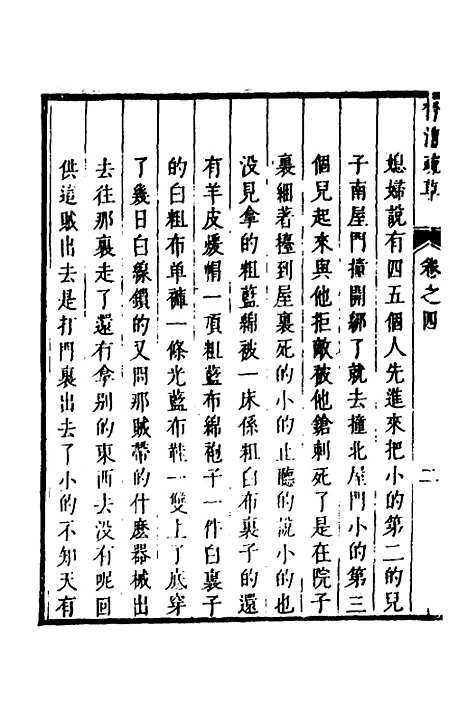 媳婦說有四五個人先進來把小的第二的兒
子南屋門撞開綁了就去撞北屋門小的第三
個兒起來與他拒敵被他鎗刺死了是在院子
裏綑著擡到屋裏死的小的止聽的說小的也
没見拿的粗藍綿被一床係粗白布裏子的還
有羊皮煖帽一項粗藍布綿袍子一件白裏子
的白粗布单褲一條光藍布鞋一雙上了底穿
了幾日白線鎖的又問那賊帶的什麽器械出
去往那裏走了還有拿别的東西去没有呢回
供這賊出去是打門裏出去了小的不知天有
卷之四
二